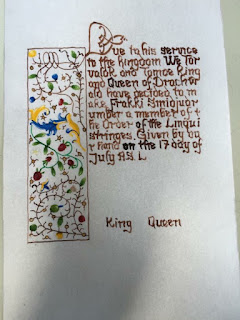 Due to his service
to the kingdom We Tor
valdr and Tomoe King
and Queen of Drachenw
ald have decided to m
ake Frakki
umber a member of t
he Order of the Linqui
stringes. Given by ou
r Hand on the 17 day of
July AS L
King Queen